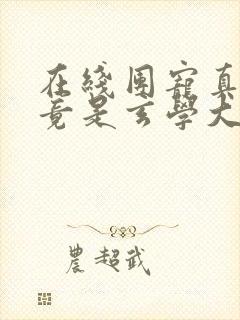 在綫團寵真
竟是玄學大
農超武